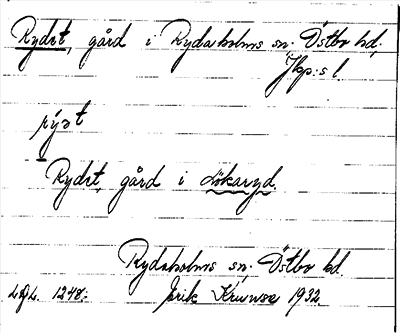 Rydet, gård i Rydaholms sn. Östbo hd,
Jkp:s l.
rýət
Rydet, gård i Lökaryd.
Rydaholms sn, Östbo hd.
LgL. 1248: Erik Kruuse 1932.